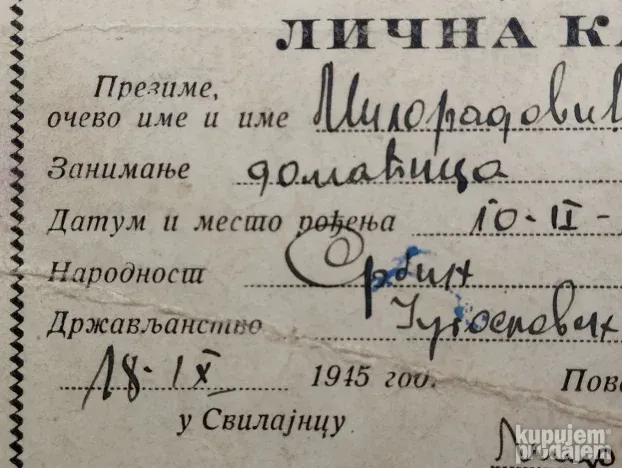 ЛИЧНА КА
Презиме,
очево име и име Милорадовић
Занимање домаћица
Датум и место рођења 10-II-
Народност Србин
Држављанство Југословен
18-IX 1945 год. Пов
у Свилајнцу
kupujem
prodajem